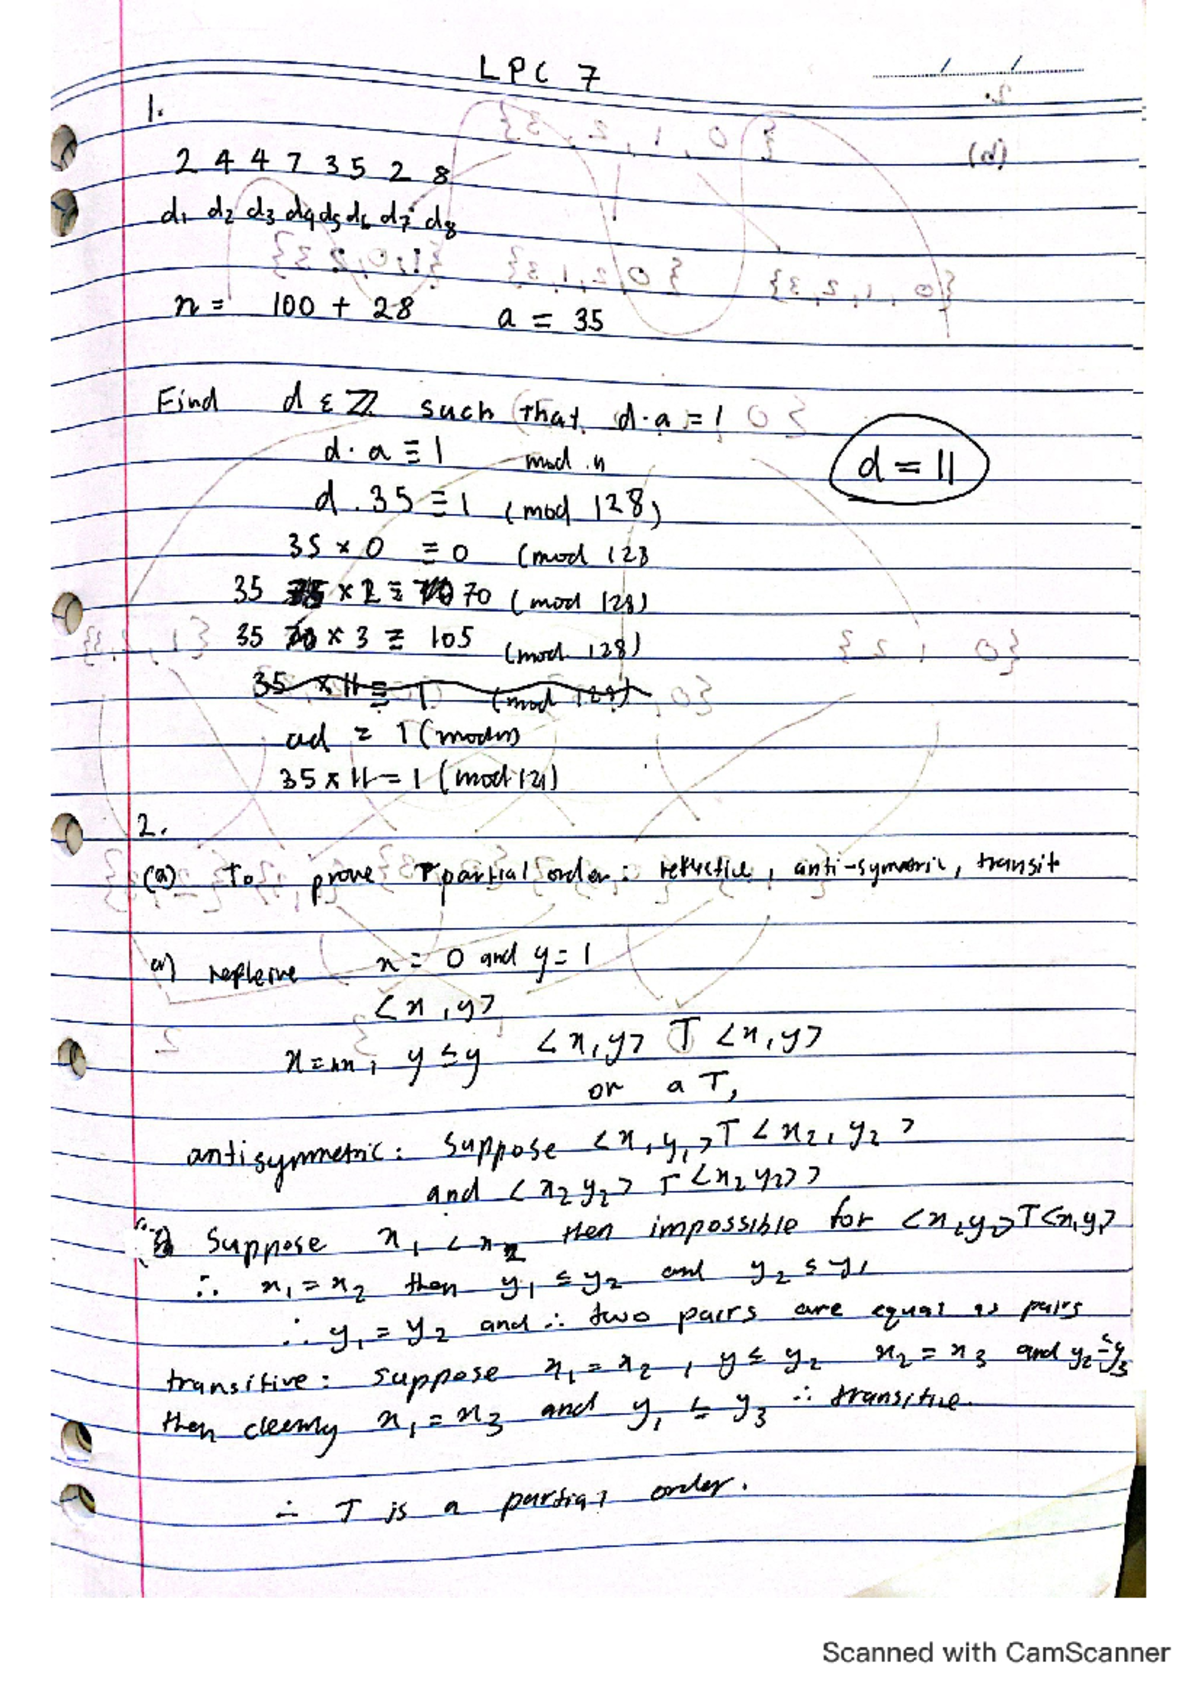 LPC 7
1.
2 4 4 7 3 5 2 8
d1 d2 d3 d4 d5 d6 d7 d8
n = 100 + 28 a = 35
Find d ε ℤ such that d·a = 1
d · a ≡ 1 mod n
d = 11
d . 35 ≡ 1 (mod 128)
35 × 0 ≡ 0 (mod 128
35 × 2 ≡ 70 (mod 128)
35 × 3 ≡ 105 (mod 128)
35 × 11 ≡ 1 (mod 128)
ad ≡ 1 (mod n)
35 × 11 = 1 (mod 121)
2.
(a) To prove T partial order : reflective, anti-symmetric, transit
a) reflexive x = 0 and y = 1
<x, y>
x = x, y ≤ y <x, y> T <x, y>
or a T,
antisymmetric: Suppose <x, y, > T <x2, y2 >
and <x2 y2> T <x2 y2>>
Suppose x1 < x2 then impossible for <x2 y2> T <x1 y1>
∴ x1 = x2 then y1 ≤ y2 and y2 ≤ y1
∴ y1 = y2 and ∴ two pairs are equal as pairs
transitive: suppose x1 = x2 , y ≤ y2 x2 = x3 and y2 ≤ y3
then clearly x1 = x3 and y1 ≤ y3 ∴ transitive.
∴ T is a partial order.
Scanned with CamScanner